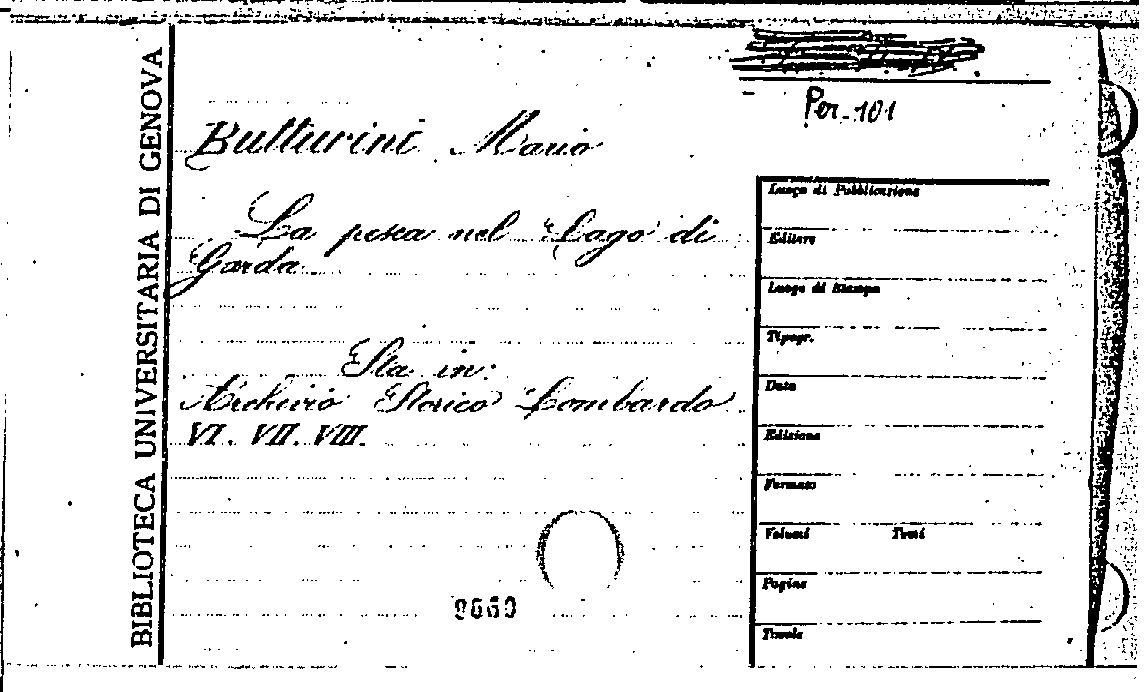 BIBLIOTECA UNIVERSITARIA DI GENOVA
Per-101
Butturini Mario
La pesca nel Lago di
Garda
Sta in:
Archivio Storico Lombardo
VI. VII. VIII.
Luogo di Pubblicazione
Editore
Luogo di Stampa
Tipogr.
Data
Edizione
Formato
Volumi Tomi
Pagine
Tavole